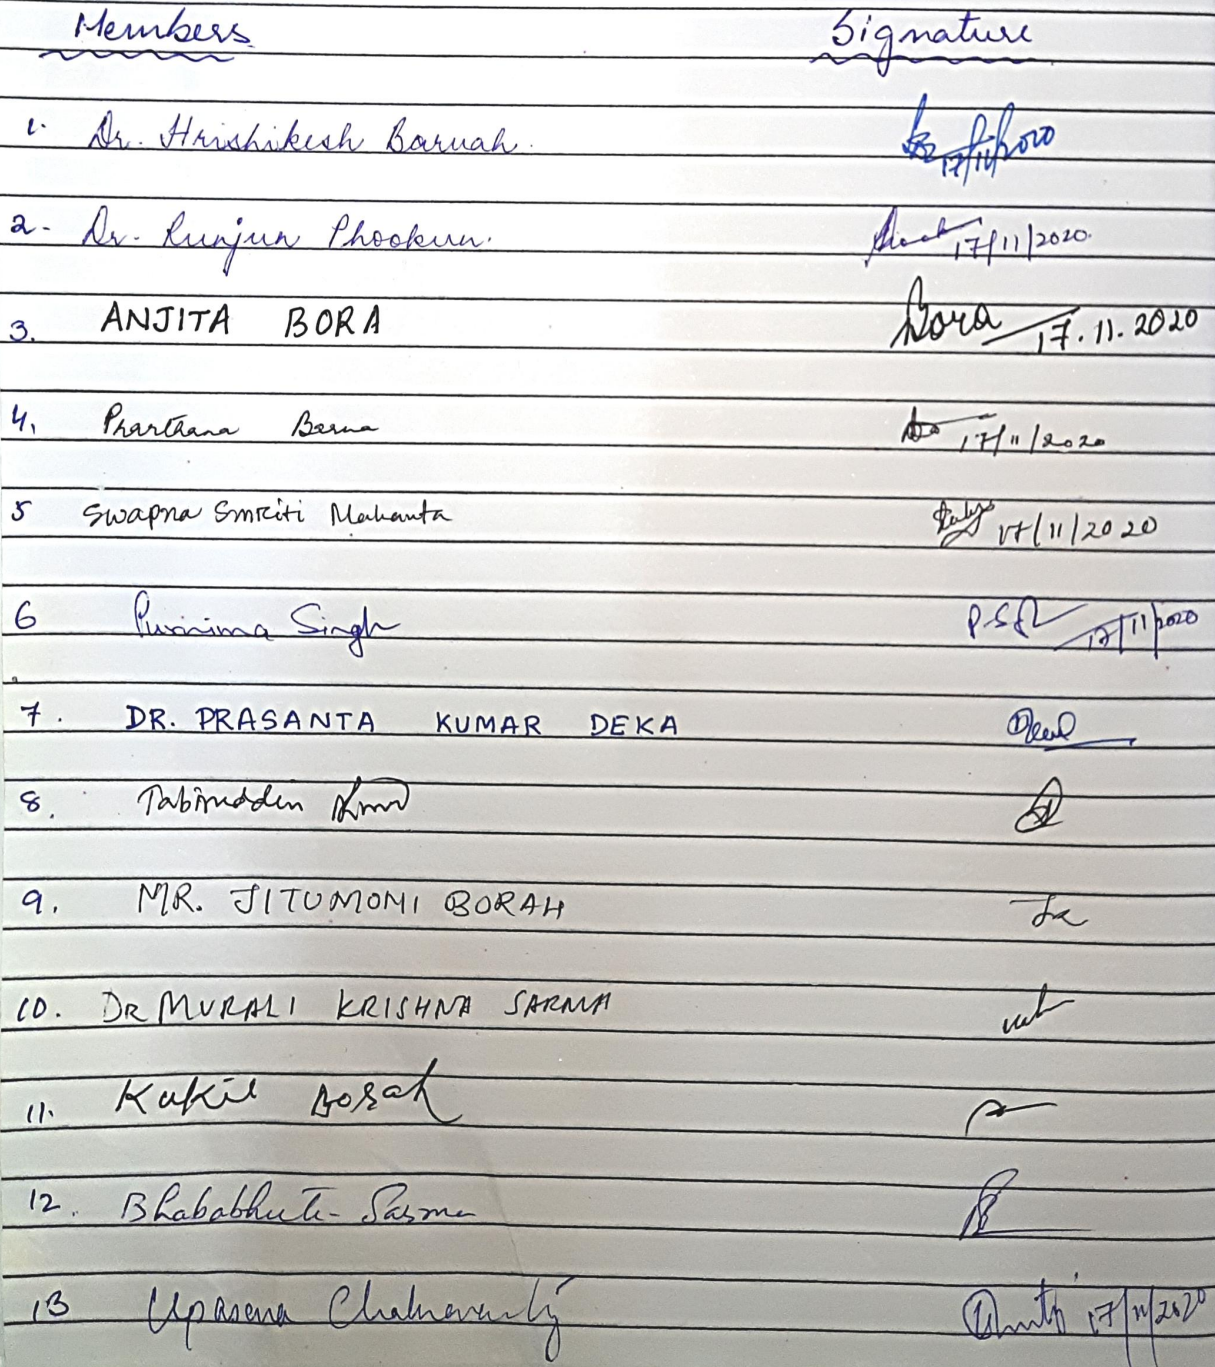 Members Signature
1. Dr. Hrishikesh Baruah. 17/11/2020
2. Dr. Runjun Phookun. 17/11/2020.
3. ANJITA BORA Bora 17.11.2020
4. Prarthana Barua 17/11/2020
5 Swapna Smriti Mahanta 17/11/2020
6 Purnima Singh 17/11/2020
7. DR. PRASANTA KUMAR DEKA
8. Tabinuddin
9. MR. JITUMONI BORAH
10. DR MURALI KRISHNA SARMA
11. Kakil Borah
12. Bhababhuti Sarma
13 Upasana Chakravarty 17/11/2020